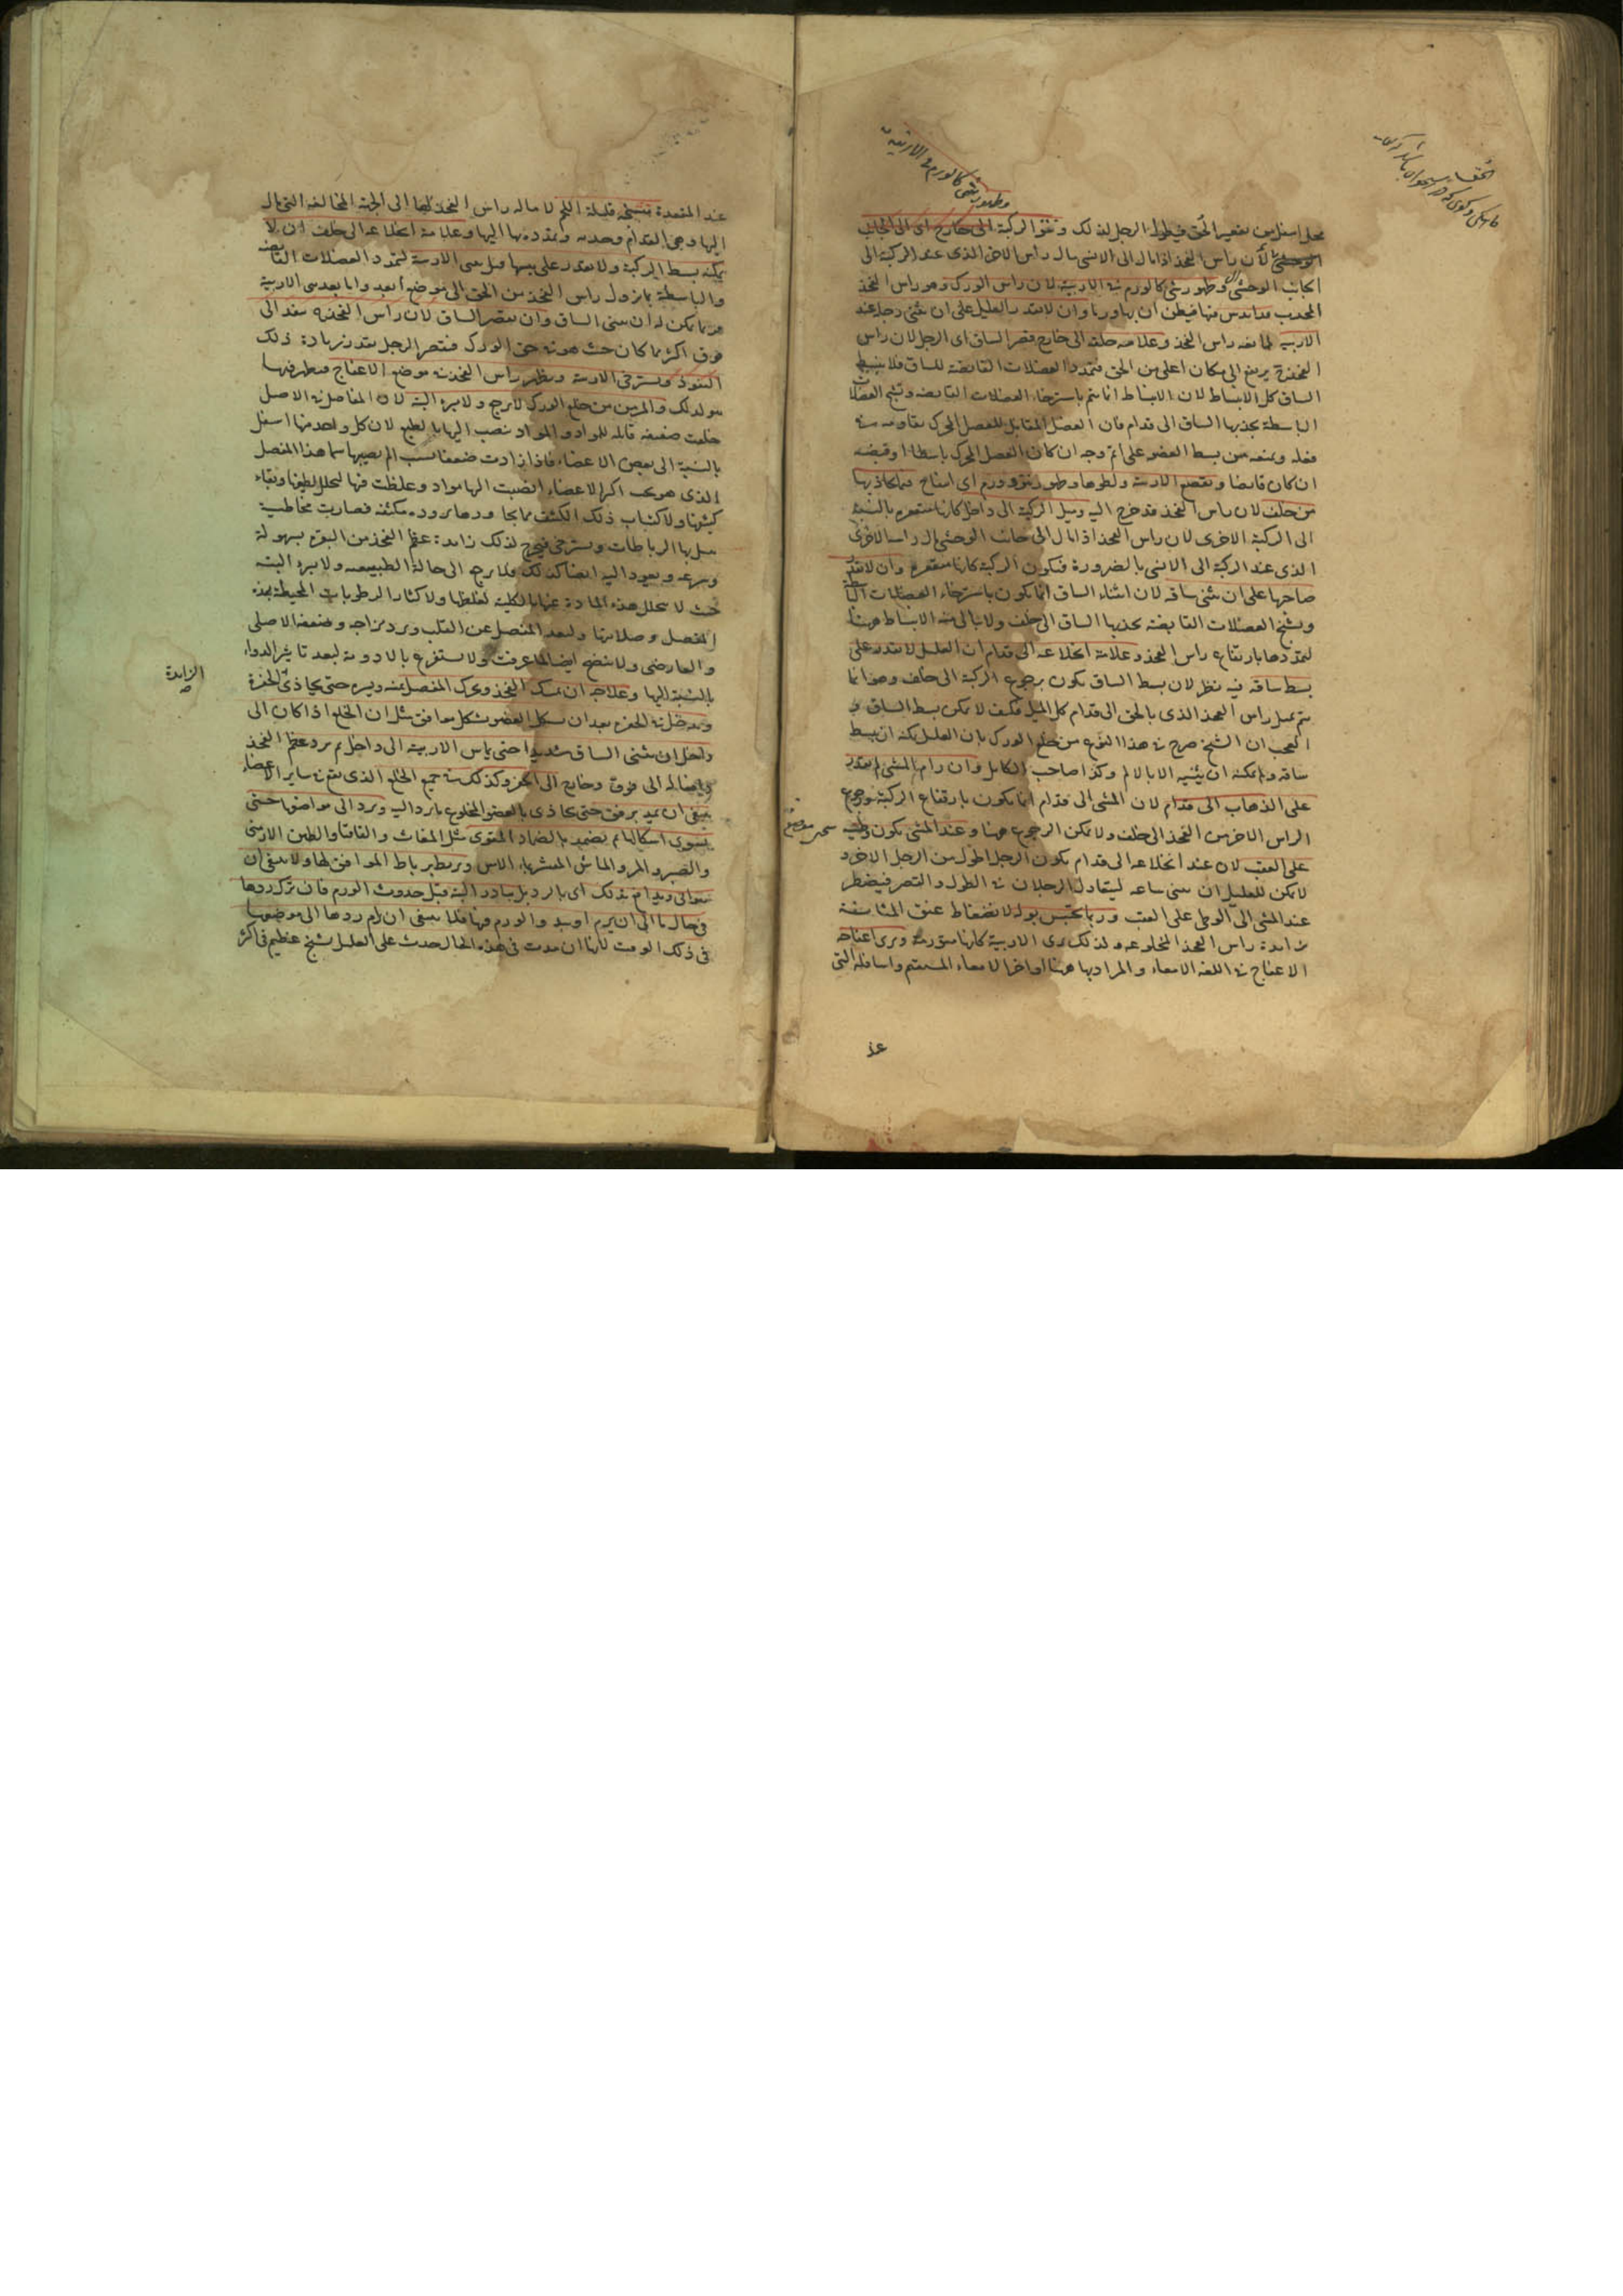 وظهور شئ كالورم في الاربية
محل اسفل من تقعير الحق فيطول الرجل لذلك ونتو الركبة الى خارج اى الى الجانب
الوحشى لأن رأس الفخذ اذا مال الى الانسى مال رأس الاخر الذى عند الركبة الى
الجانب الوحشى وظهور شئ كالورم في الاربية لان راس الورك وهو راس الفخذ
المحدب قد اندس فيها فيظن ان بها ورما وان لا يقدر العليل على ان يثنى رجله عند
الاربية لمانعة راس الفخذ وعلامة خلعه الى خارج قصر الساق اى الرجل لان راس
الفخذ يرتفع الى مكان اعلى من الحق فتمدد العضلات القابضة للساق فلا ينبسط
الساق كل الانبساط لان الانبساط انما يتم باسترخاء العضلات القابضة وتشنج العضلات
الباسطة بجذبها الساق الى قدام فان العضل المقابل للعضل المحرك يقاومه في
فعله ويمنعه من بسط العضو على اتم وجه ان كان العضل المحرك باسطا او قبضه
ان كان قابضا وتقصع الاربية ولطوها وظهور نتو وورم اى انتفاخ فيما يحاذيها
من خلف لان راس الفخذ قد خرج اليه وميل الركبة الى داخل كانها متقعرة بالنسبة
الى الركبة الاخرى لان راس الفخذ اذا مال الى جانب الوحشى مال راسه الاخرى
الذى عند الركبة الى الانسى بالضرورة فيكون الركبة كانها متقعرة وان لا يقدر
صاحبها على ان يثنى ساقه لان انثناء الساق انما يكون باسترخاء العضلات الباسطة
وتشنج العضلات القابضة بجذبها الساق الى خلف ولا يتأتى منه الانبساط ههنا
لتمددها بارتفاع راس الفخذ وعلامة انخلاعه الى قدام ان العليل لا يقدر على
بسط ساقه فيه نظر لان بسط الساق يكون برجوع الركبة الى خلف وهو انما
يتم بميل راس الفخذ الذى بالحق الى قدام كل الميل فكيف لا يمكن بسط الساق و
العجب ان الشيخ صرح في هذا النوع من خلع الورك بان العليل يمكنه ان يبسط
ساقه ولا يمكنه ان يثنيه الا بالالم وكذا صاحب الكامل وان رام المشى لم يقدر
على الذهاب الى قدام لان المشى الى قدام انما يكون بارتفاع الركبة ورجوع
الراس الاخر من الفخذ الى خلف ولا يمكن الرجوع ههنا وعند المشى يكون وطيه
على العقب لان عند انخلاعه الى قدام يكون الرجل اطول من الرجل الاخر و
لا يمكن للعليل ان يثنى ساقه ليتعادل الرجلان في الطول والقصر فيضطر
عند المشى الى الوطى على العقب وربما يحتبس بوله لانضغاط عنق المثانة
بزايدة راس الفخذ المخلوعة ولذلك يرى الاربية كانها متورمة ويرى اعفاجه
الاعفاج في اللغة الامعاء والمراد بها ههنا اواخر الامعاء المستقيم واسافله التى
عند
عند المقعدة متشنجة قليلة اللحم لامالة راس الفخذ لها الى الجهة المخالفة التى مال
اليها وهى القدام وجذبه وتمدده بها اليها وعلامة انخلاعه الى خلف ان لا
يمكنه بسط الركبة ولا يقدر على ثنيها قبل ثنى الاربية لتمدد العضلات القابضة
والباسطة بنزول راس الفخذ من الحق الى موضع ابعد واما بعد ثنى الاربية
فربما يمكن له ان يثنى الساق وان يقصر الساق لان راس الفخذ ينفذ الى
فوق اكثر مما كان حيث هو في حق الورك فيقصر الرجل بقدر زيادة ذلك
النفوذ ويسترخى الاربية ويظهر راس الفخذ في موضع الاعفاج فيظهر فيها
نتو لذلك والمزمن من خلع الورك لا يرجع ولا يبرء البتة لان المفاصل في الاصل
خلقت ضعيفة قابلة للمواد والمواد تنصب اليها بالطبع لان كل واحد منها اسفل
بالنسبة الى بعض الاعضاء فاذا ازدادت ضعفا بسبب الم يصيبها سيما هذا المفصل
الذى هو تحت اكثر الاعضاء انصبت اليها مواد وغلظت فيها لتحلل لطيفها وبقاء
كثيفها ولاكتساب ذلك الكثيف مما يجاورها برودة مكثفة فصارت مخاطية
يبتل بها الرباطات ويسترخى فيخرج لذلك زايدة عظم الفخذ من النقرة بسهولة
وسرعة ويعود اليه ايضا كذلك وقلما يرجع الى حالة الطبيعية ولا يبرء البتة
حيث لا يتحلل هذه المادة عنها بالكلية لغلظها ولاكثار الرطوبات المحيطة بهذه
المفصل وصلابتها ولبعد المفصل عن القلب وبرد مزاجه وضعفه الاصلى
والعارضى ولا ينضج ايضا لما عرفت ولا يستفرغ بالادوية لبعد تاثير الدواء
بالنسبة اليها وعلاجه ان يمسك الفخذ ويحرك المفصل يمنة ويسرة حتى يحاذى الحفرة
الزايدة
ويدخل في الحفرة بعد ان يشكل العضو بشكل موافق مثل ان الخلع اذا كان الى
داخل ان يثنى الساق شديدا حتى يماس الاربية الى داخل ثم يرد عظم الفخذ
وايصاله الى فوق وخارج الى الحفرة وكذلك في جميع الخلع الذى يقع في ساير الاعضاء
ينبغى ان يمد برفق حتى يحاذى بالعضو المخلوع ما يرد اليه ويرد الى مواضعها حتى
يستوى اشكالها ثم يضمد بالضماد المقوى مثل المغاث والقاقيا والطين الارمنى
والصبر والمر والماش المعشر بماء الآس ويربط برباط الموافق لها ولا ينبغى ان
يتوانى ويدافع بذلك اى بالرد بل يبادر اليه قبل حدوث الورم فان ترك ردها
فى حال ما الى ان يرم او يبدو الورم فيها فلا ينبغى ان يرام ردها الى موضعها
فى ذلك الوقت لانها ان مدت فى هذه الحال حدث على العليل تشنج عظيم فى اكثر